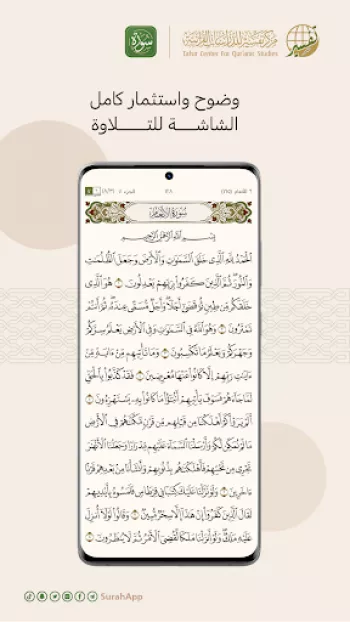 سورة
مركز تفسير للدراسات القرآنية
Tafsir Center For Qur'anic Studies
تفسير
وضوح واستثمار كامل
الشاشـــة للتـــــلاوة
٦ الأنعام (١٦٥) ١٢٨ الجزء ٧
سُورَةُ الأَنْعَامِ
بِسۡمِ ٱللَّهِ ٱلرَّحۡمَٰنِ ٱلرَّحِيمِ
ٱلۡحَمۡدُ لِلَّهِ ٱلَّذِي خَلَقَ ٱلسَّمَٰوَٰتِ وَٱلۡأَرۡضَ وَجَعَلَ ٱلظُّلُمَٰتِ
وَٱلنُّورَۖ ثُمَّ ٱلَّذِينَ كَفَرُواْ بِرَبِّهِمۡ يَعۡدِلُونَ ١ هُوَ ٱلَّذِي
خَلَقَكُم مِّن طِينٖ ثُمَّ قَضَىٰٓ أَجَلٗاۖ وَأَجَلٞ مُّسَمًّى عِندَهُۥۖ ثُمَّ أَنتُمۡ
تَمۡتَرُونَ ٢ وَهُوَ ٱللَّهُ فِي ٱلسَّمَٰوَٰتِ وَفِي ٱلۡأَرۡضِ يَعۡلَمُ سِرَّكُمۡ
وَجَهۡرَكُمۡ وَيَعۡلَمُ مَا تَكۡسِبُونَ ٣ وَمَا تَأۡتِيهِم مِّنۡ ءَايَةٖ مِّنۡ
ءَايَٰتِ رَبِّهِمۡ إِلَّا كَانُواْ عَنۡهَا مُعۡرِضِينَ ٤ فَقَدۡ كَذَّبُواْ بِٱلۡحَقِّ
لَمَّا جَآءَهُمۡ فَسَوۡفَ يَأۡتِيهِمۡ أَنۢبَٰٓؤُاْ مَا كَانُواْ بِهِۦ يَسۡتَهۡزِءُونَ ٥
أَلَمۡ يَرَوۡاْ كَمۡ أَهۡلَكۡنَا مِن قَبۡلِهِم مِّن قَرۡنٖ مَّكَّنَّٰهُمۡ فِي ٱلۡأَرۡضِ
مَا لَمۡ نُمَكِّن لَّكُمۡ وَأَرۡسَلۡنَا ٱلسَّمَآءَ عَلَيۡهِم مِّدۡرَارٗا وَجَعَلۡنَا ٱلۡأَنۡهَٰرَ
تَجۡرِي مِن تَحۡتِهِمۡ فَأَهۡلَكۡنَٰهُم بِذُنُوبِهِمۡ وَأَنشَأۡنَا مِنۢ بَعۡدِهِمۡ قَرۡنًا
ءَاخَرِينَ ٦ وَلَوۡ نَزَّلۡنَا عَلَيۡكَ كِتَٰبٗا فِي قِرۡطَاسٖ فَلَمَسُوهُ بِأَيۡدِيهِمۡ
لَقَالَ ٱلَّذِينَ كَفَرُوٓاْ إِنۡ هَٰذَآ إِلَّا سِحۡرٞ مُّبِينٞ ٧ وَقَالُواْ لَوۡلَآ أُنزِلَ
عَلَيۡهِ مَلَكٞۖ وَلَوۡ أَنزَلۡنَا مَلَكٗا لَّقُضِيَ ٱلۡأَمۡرُ ثُمَّ لَا يُنظَرُونَ ٨
SurahApp